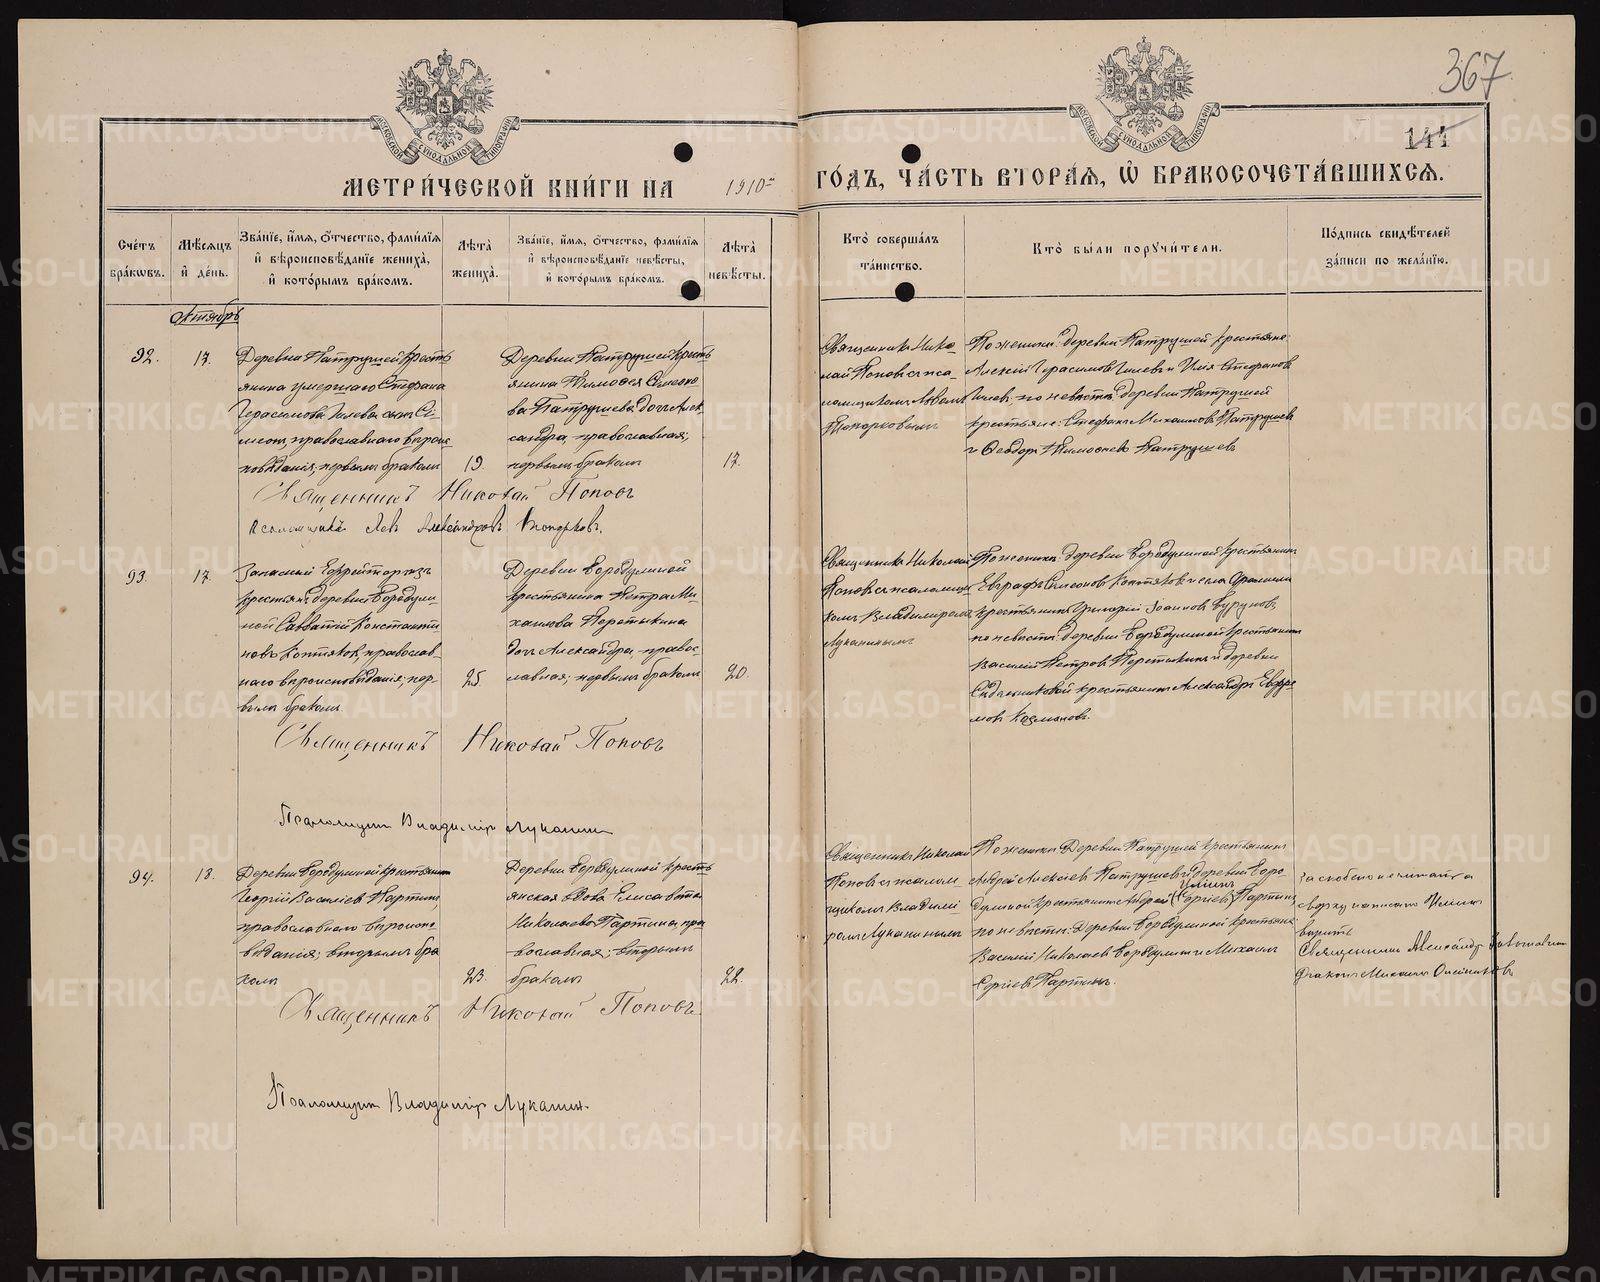 367
141
МЕТРИ́ЧЕСКОЙ КНИ́ГИ НА 1910 ГО́ДЪ, ЧА́СТЬ ВТОРА́Я, Ѡ҆ БРАКОСОЧЕТА́ВШИХСѦ.
Сче́тъ бра́кѡвъ.
Мѣ́сяцъ и҆ де́нь.
Зва́нїе, и҆́мѧ, ѻ҆́тчество, фамилїѧ и҆ вѣроисповѣ́данїе жениха̀, и҆ кото́рымъ бра́комъ.
Лѣ́та жениха̀.
Зва́нїе, и҆́мѧ, ѻ҆́тчество, фами́лїѧ и҆ вѣроисповѣ́данїе невѣ́сты, и҆ кото́рымъ бра́комъ.
Лѣ́та невѣ́сты.
Кто̀ соверша́лъ та́инство.
Кто̀ бы́ли порꙋчи́тели.
По́дпись свидѣ́телей за́писи по жела́нїю.
Октябрь
92.
17.
Деревни Патрушей кресть
янина умершаго Стефана
Герасимова Гилева сынъ Си
меонъ, православнаго вѣроис
повѣданія, первымъ бракомъ
19.
Деревни Патрушей кресть
янина Тимофея Симеоно
ва Патрушева дочь Алек
сандра, православная;
первымъ бракомъ
17.
Священникъ Нико
лай Поповъ съ пса
ломщикомъ Львомъ
Топорковымъ
По женихѣ: деревни Патрушей крестьяне
Алексій Герасимовъ Гилевъ и Илія Стефановъ
Гилевъ; по невѣстѣ: деревни Патрушей
крестьяне: Стефанъ Михаиловъ Патрушевъ
и Ѳеодоръ Тимофеевъ Патрушевъ
Священникъ Николай Поповъ
Псаломщикъ Левъ Александровъ Топорковъ.
93.
17.
Запасный Ефрейторъ изъ
крестьянъ деревни Бородули
ной Савватій Константи
новъ Коптяковъ, православ-
наго вѣроисповѣданія; пер-
вымъ бракомъ
25
Деревни Бородулиной
крестьянина Петра Ми
хаилова Перетыкина
дочь Александра, правос
лавная; первымъ бракомъ
20.
Священникъ Николай
Поповъ съ псаломщи
комъ Владимиромъ
Луканинымъ
По женихѣ: деревни Бородулиной крестьянинъ
Евграфъ Симеоновъ Коптяковъ и села Арамили
крестьянинъ Григорій Іоанновъ
по невѣстѣ: деревни Бородулиной крестьянинъ
Василій Петровъ Перетыкинъ и деревни
крестьянинъ Александръ Евфре
мовъ
Священникъ Николай Поповъ
Псаломщикъ Владиміръ Луканинъ
94.
18.
Деревни Бородулиной крестьянинъ
Георгій Василіевъ Партинъ,
православнаго вѣроиспо
вѣданія; вторымъ бра
комъ
23.
Деревни Бородулиной кресть
янская вдова Елисавета
Николаева Партина, пра
вославная; вторымъ
бракомъ
22.
Священникъ Николай
Поповъ съ псалом-
щикомъ Владимі
ромъ Луканинымъ
По женихѣ: Деревни Патрушей крестьянинъ
Андрей Алексіевъ Патрушевъ и деревни Боро
дулиной крестьянинъ Андрей (Сергіевъ) Партинъ,
по невѣстѣ: деревни Бородулиной крестьяне
Василій Николаевъ Бородулинъ и Михаилъ
Сергіевъ Партинъ.
За скобою не читать а
сверху написано
вѣрить
Священникъ Александръ
Діаконъ Михаилъ
Священникъ Николай Поповъ
Псаломщикъ Владиміръ Луканинъ.
METRIKI.GASO-URAL.RU